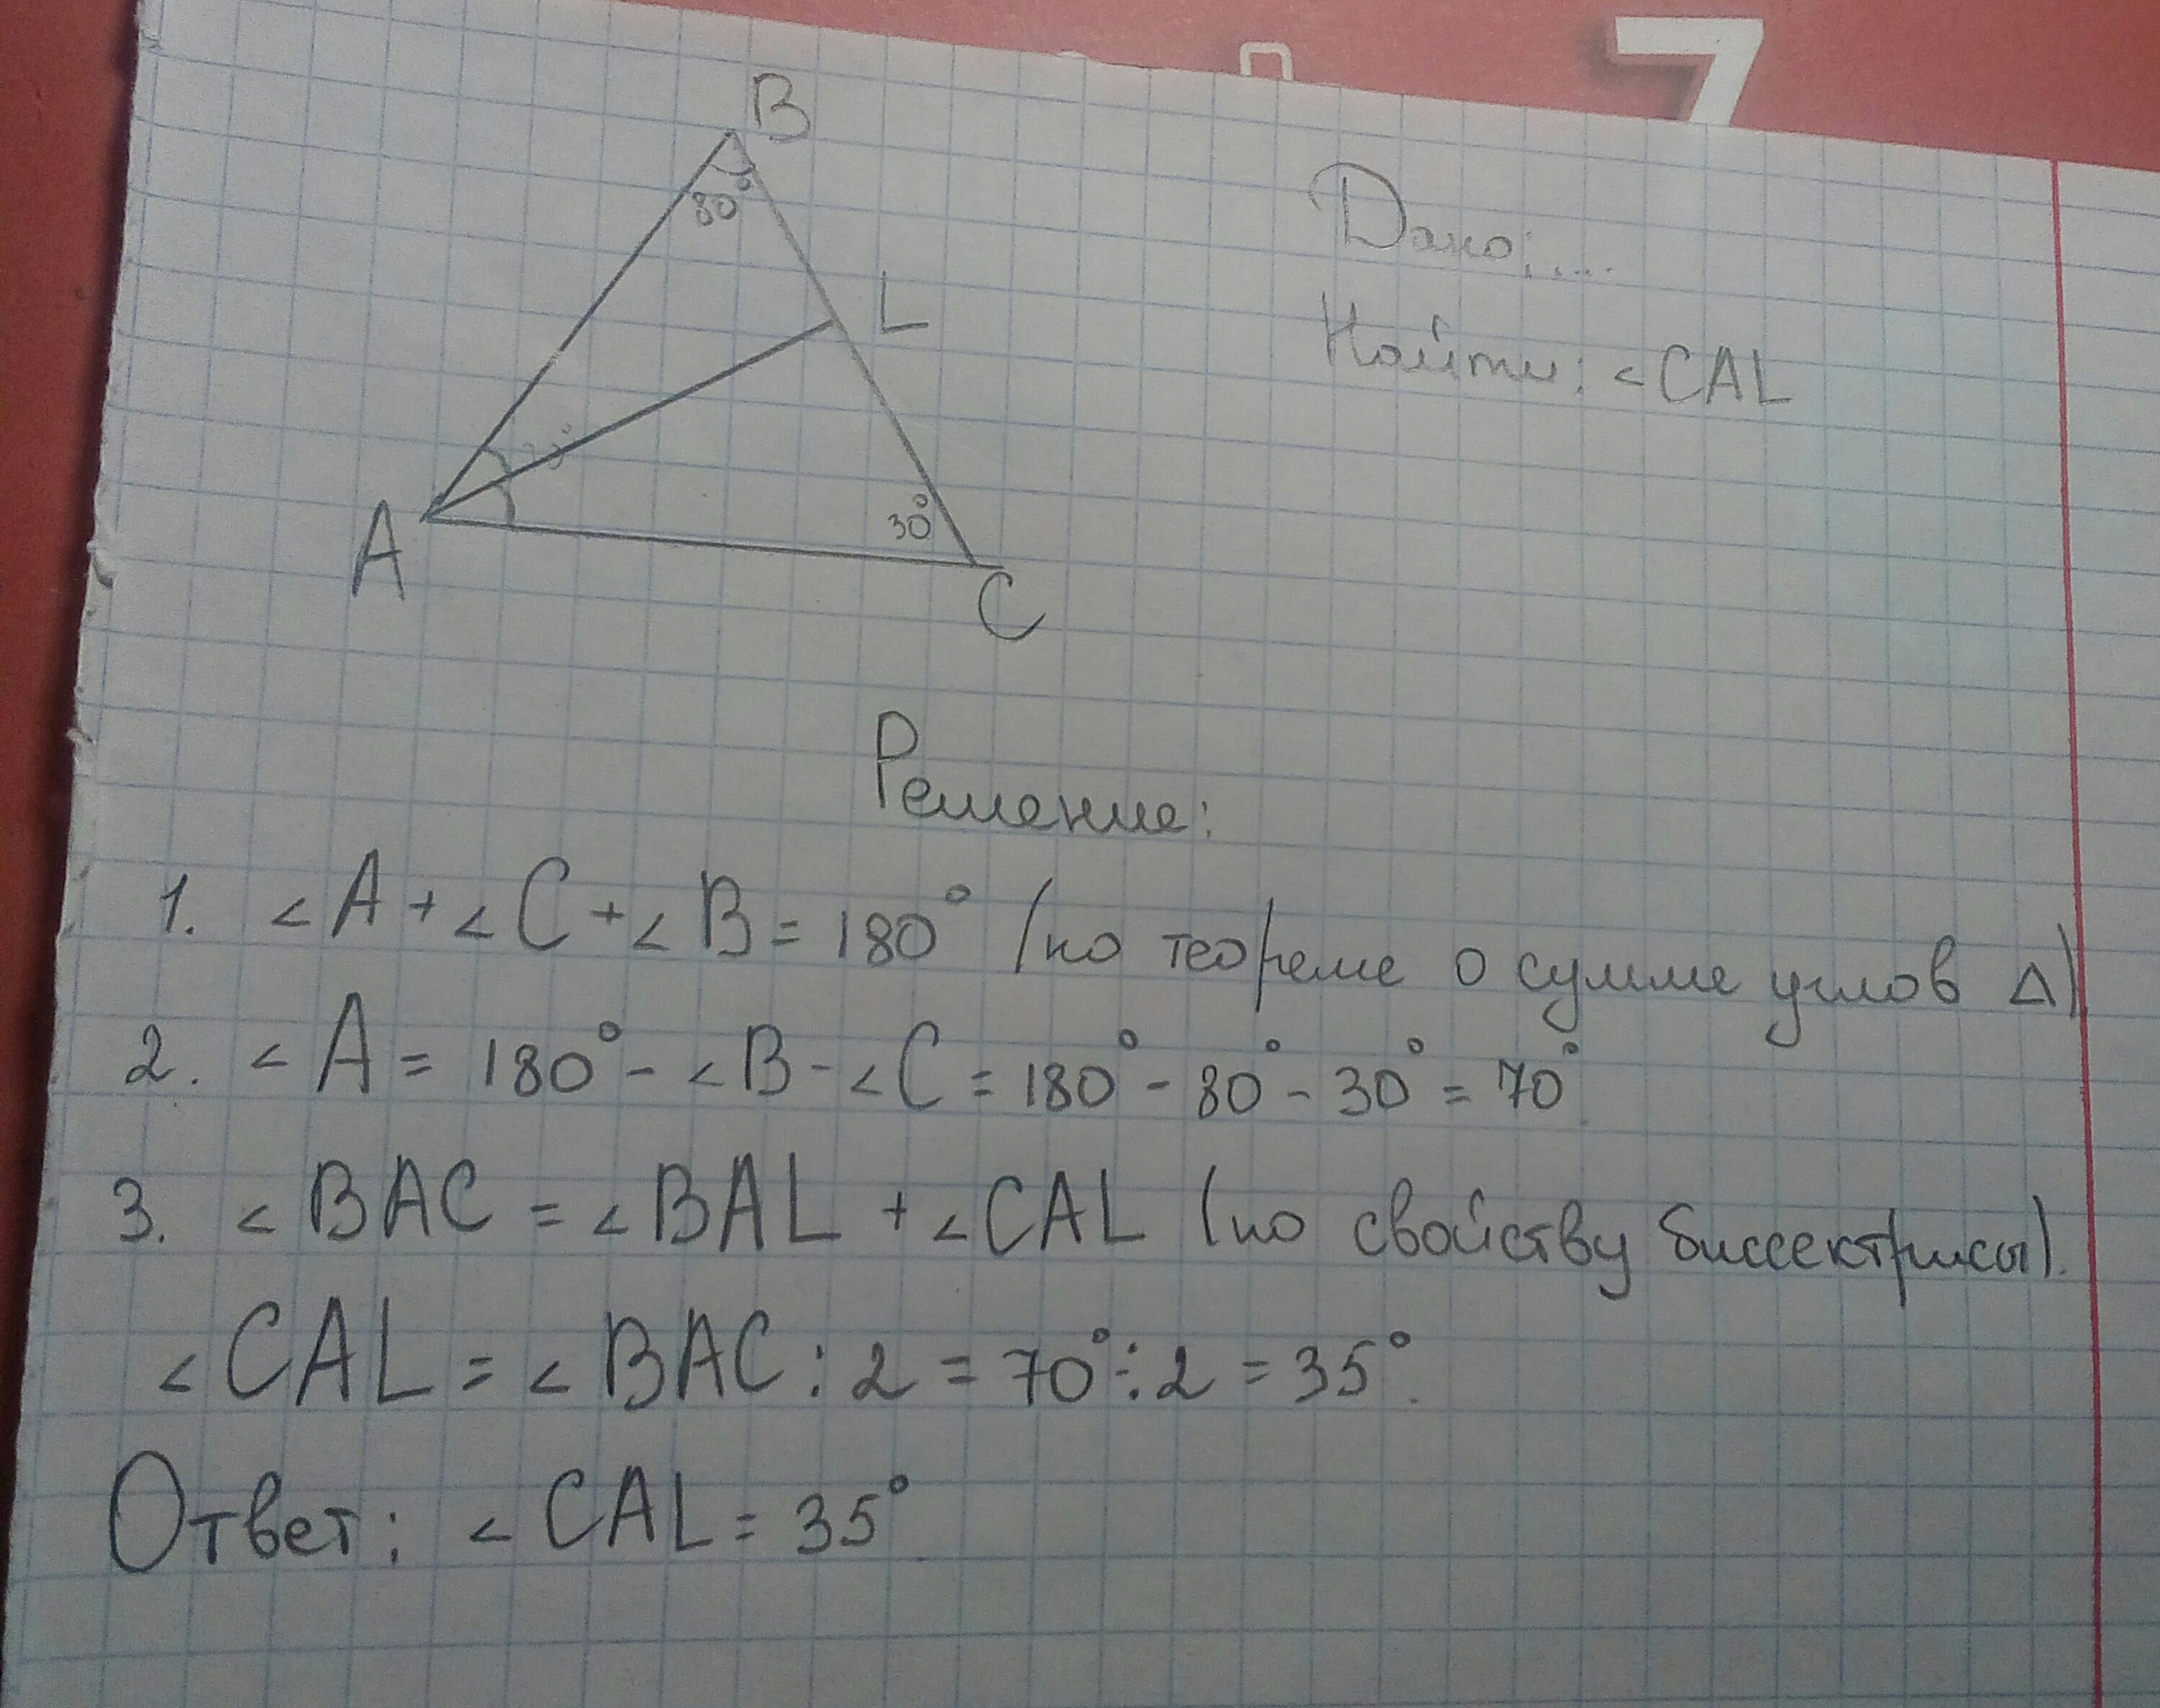 7
B
80°
L
A
30°
C
Дано: ...
Найти: <CAL
Решение:
1. <A + <C + <B = 180° (по теореме о сумме углов Δ)
2. <A = 180° - <B - <C = 180° - 80° - 30° = 70°.
3. <BAC = <BAL + <CAL (по свойству биссектрисы).
<CAL = <BAC : 2 = 70° : 2 = 35°.
Ответ: <CAL = 35°